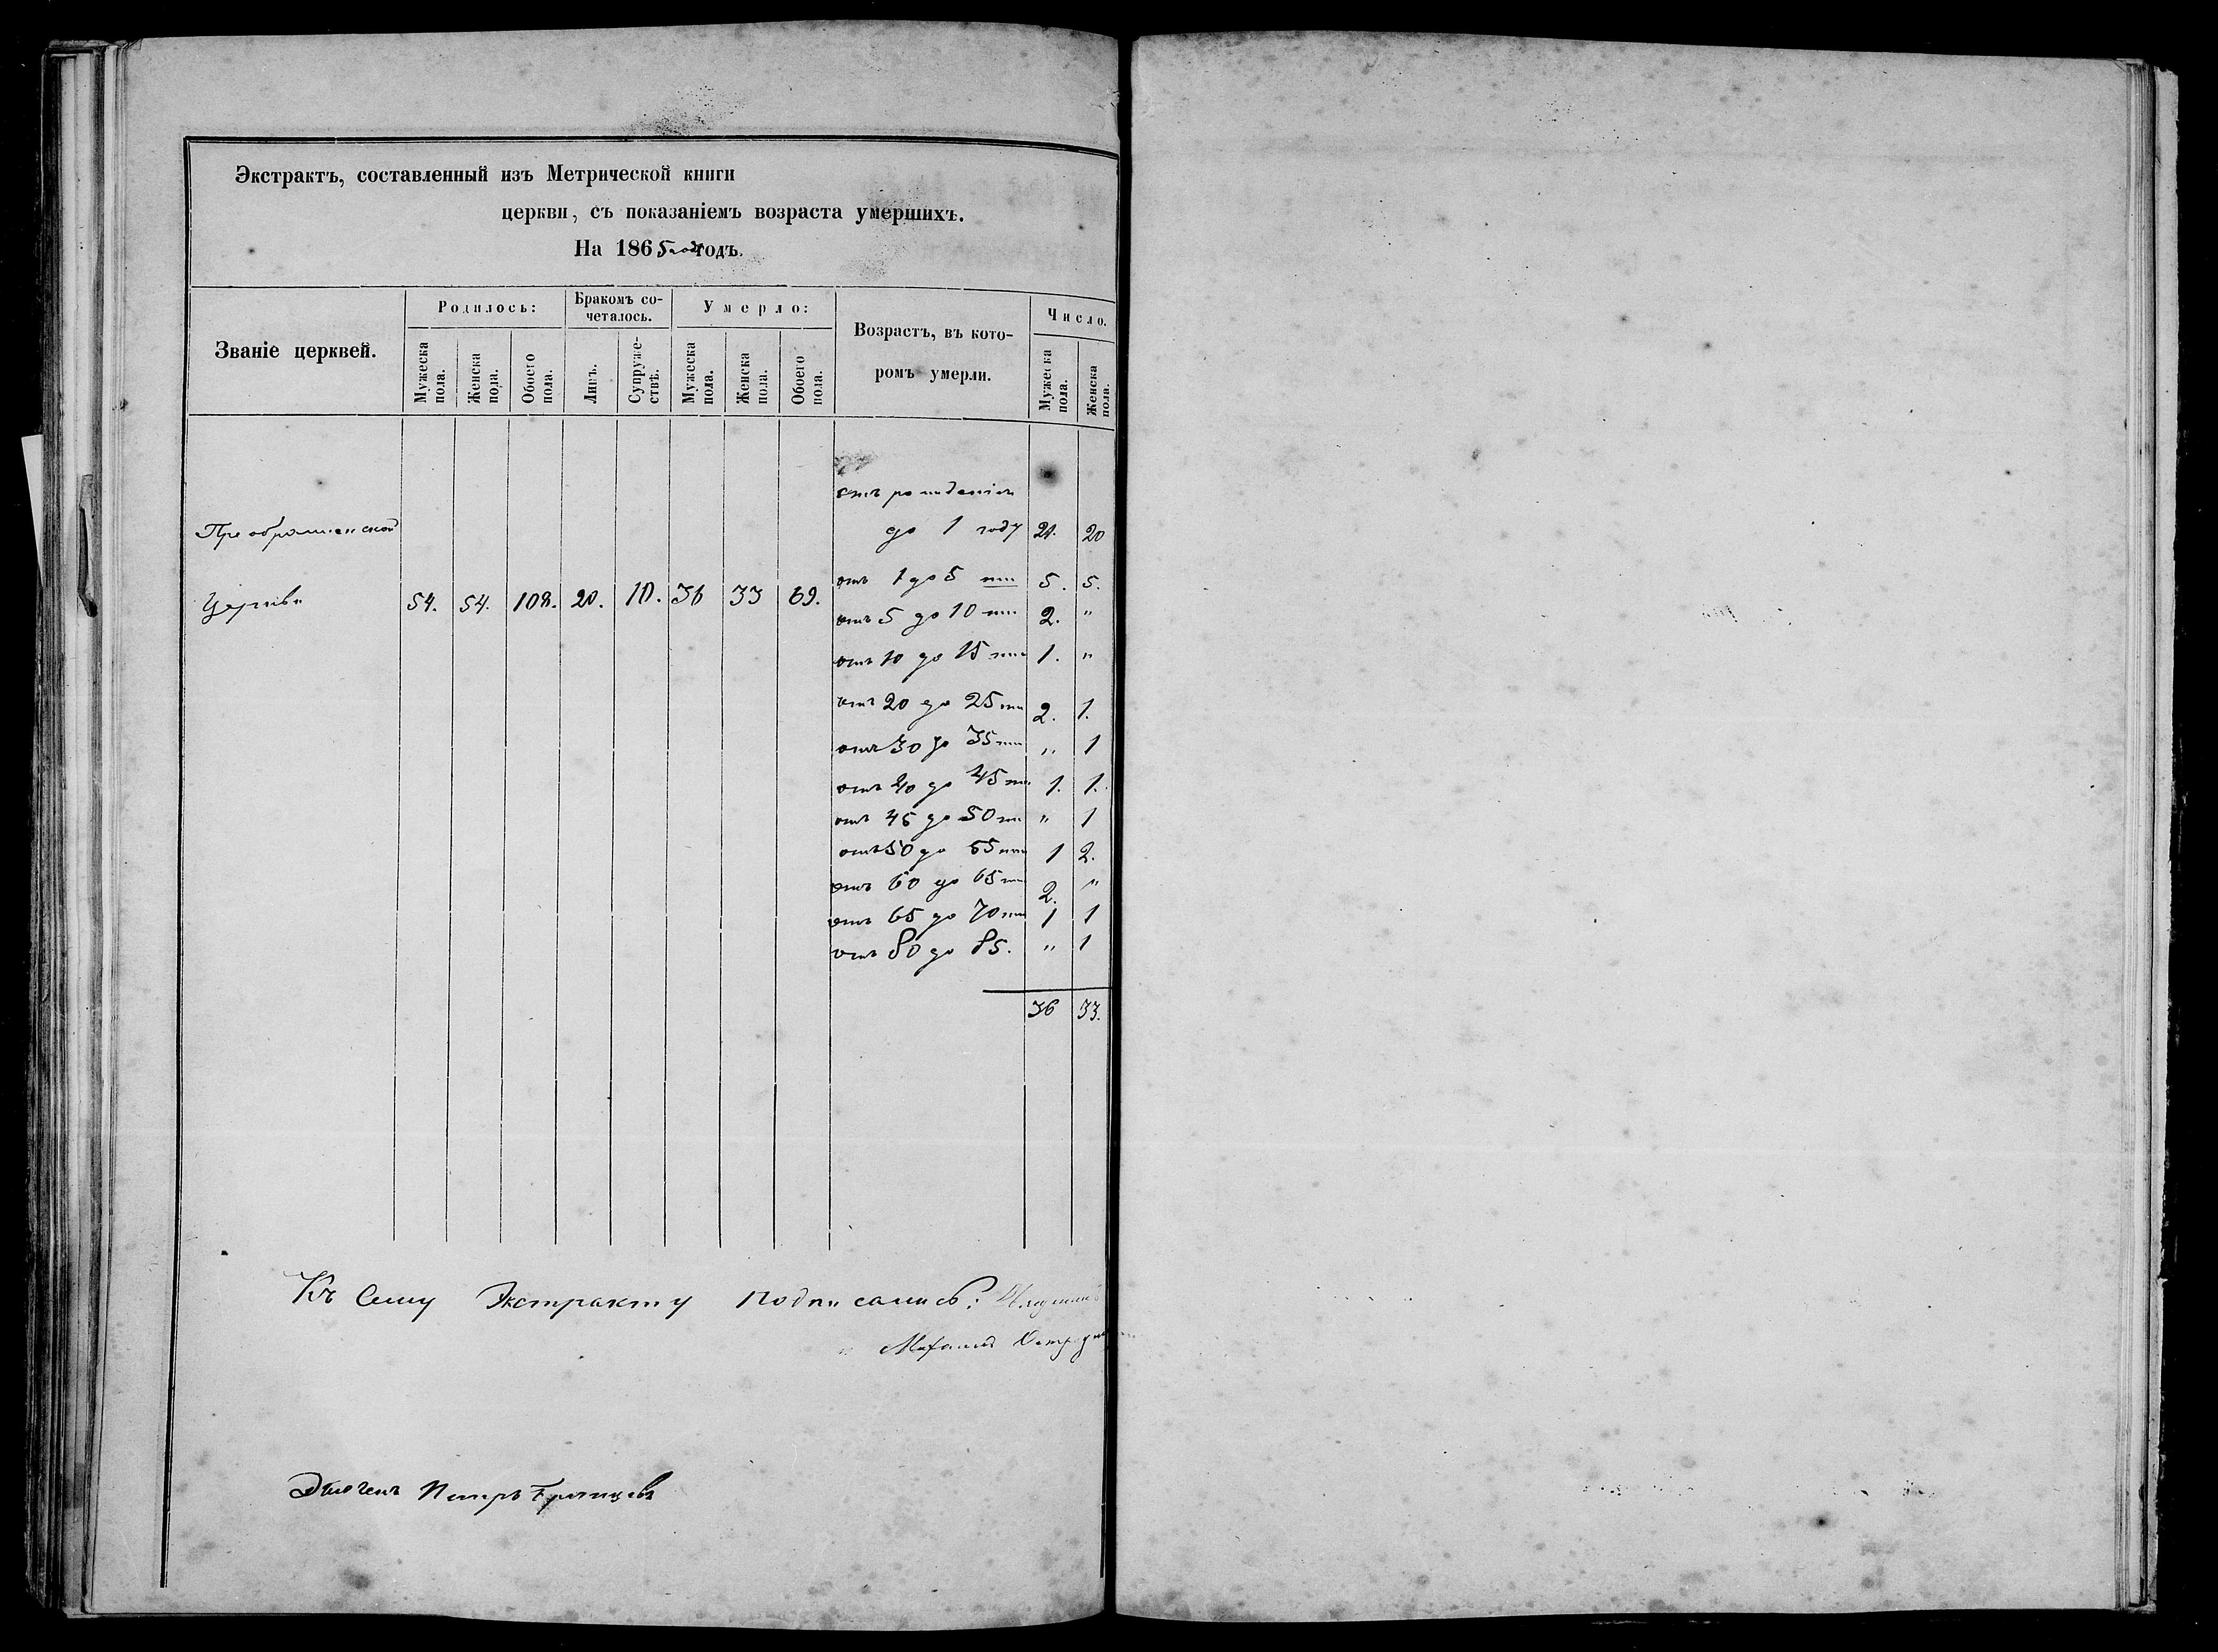 Экстрактъ, составленный изъ Метрической книги
церкви, съ показаніемъ возраста умершихъ.
На 1865 годъ.
Званіе церквей.
Родилось:
Мужеска пола.
Женска пола.
Обоего пола.
Бракомъ со-
четалось.
Лицъ.
Супруже-
ствъ.
Умерло:
Мужеска пола.
Женска пола.
Обоего пола.
Возрастъ, въ кото-
ромъ умерли.
Число.
Мужеска пола.
Женска пола.
отъ рожденія
Преображенской до 1 году 21. 20
отъ 1 до 5 5. 5.
Церкви 54. 54. 108. 20. 10. 36 33 69.
отъ 5 до 10 2. "
отъ 10 до 15 1. "
отъ 20 до 25 2. 1.
отъ 30 до 35 " 1
отъ 40 до 45 1. 1.
отъ 45 до 50 " 1
отъ 50 до 55 1 2.
отъ 60 до 65 2. "
отъ 65 до 70 1 1
отъ 80 до 85. " 1
36 33.
Къ сему Экстракту подписались:
Петръ